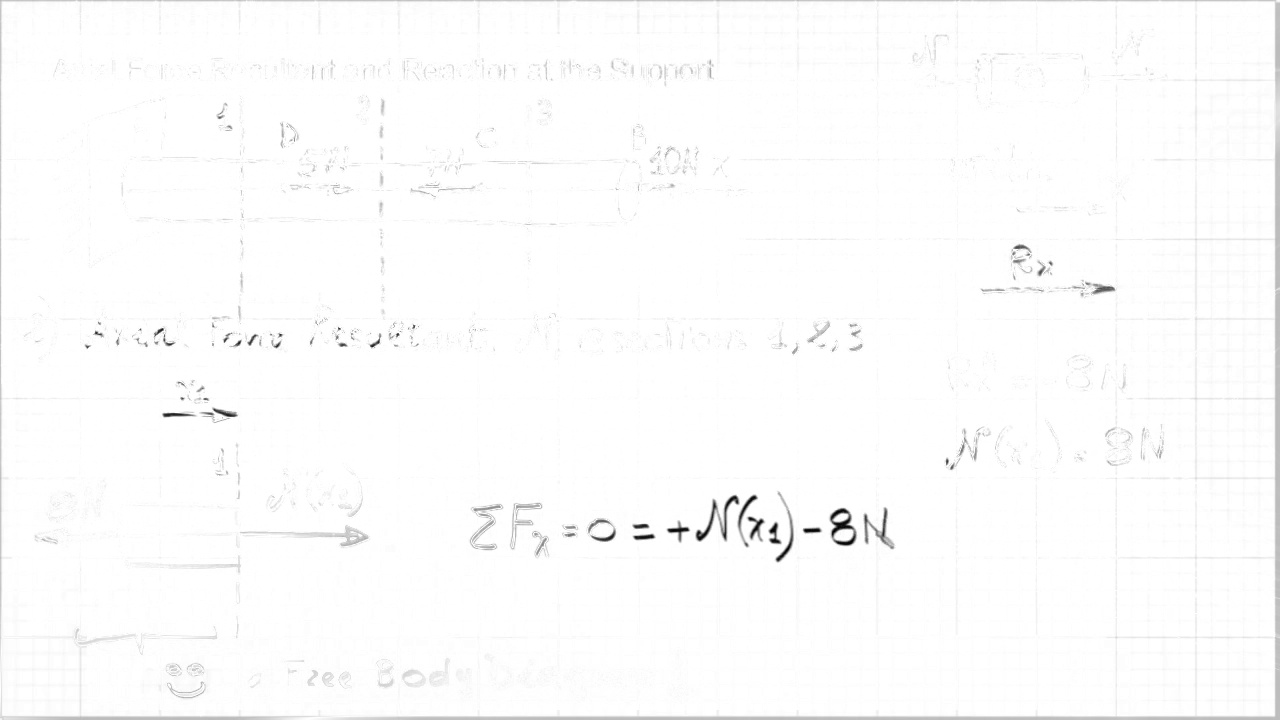 Axial Force Resultant and Reaction at the Support
N N
1 2 3
D C B
5N 7N 10N x
Rx
2) Axial Force Resultant, N, @ sections 1,2,3
= -8N
x1
N(x1) = 8N
1
8N N(x1)
ΣFx = 0 = +N(x1) - 8N
Free Body Diagram